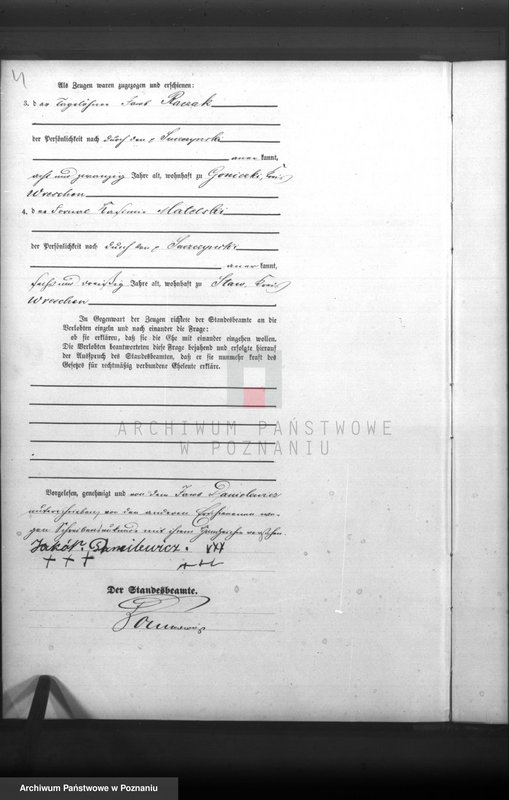 4
Als Zeugen waren zugezogen und erschienen:
3. der Tagelöhner Jacob Raczak
der Persönlichkeit nach durch den p
kannt,
acht und zwanzig Jahre alt, wohnhaft zu Goniczki, Kreis
Wreschen
4. der Fornal Kasimir Matelski
der Persönlichkeit nach durch den p
kannt,
sechs und dreißig Jahre alt, wohnhaft zu Staw, Kreis
Wreschen
In Gegenwart der Zeugen richtete der Standesbeamte an die
Verlobten einzeln und nach einander die Frage:
ob sie erklären, daß sie die Ehe mit einander eingehen wollen.
Die Verlobten beantworteten diese Frage bejahend und erfolgte hierauf
der Ausspruch des Standesbeamten, daß er sie nunmehr kraft des
Gesetzes für rechtmäßig verbundene Eheleute erkläre.
ARCHIWUM PAŃSTWOWE
W POZNANIU
Vorgelesen, genehmigt und von dem Jacob Danielewicz
unterschrieben, von den anderen Erschienenen we-
gen Schreibensunkunde mit ihrem Handzeichen versehen.
Jakób Danilewicz. +++
+++ +++
Der Standesbeamte.
Archiwum Państwowe w Poznaniu